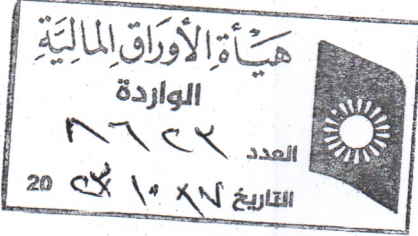 هَيْأَةِ الأوْرَاقِ المَالِيَّةِ
الواردة
العدد ٨٦٢٣
التاريخ ١٠ 20